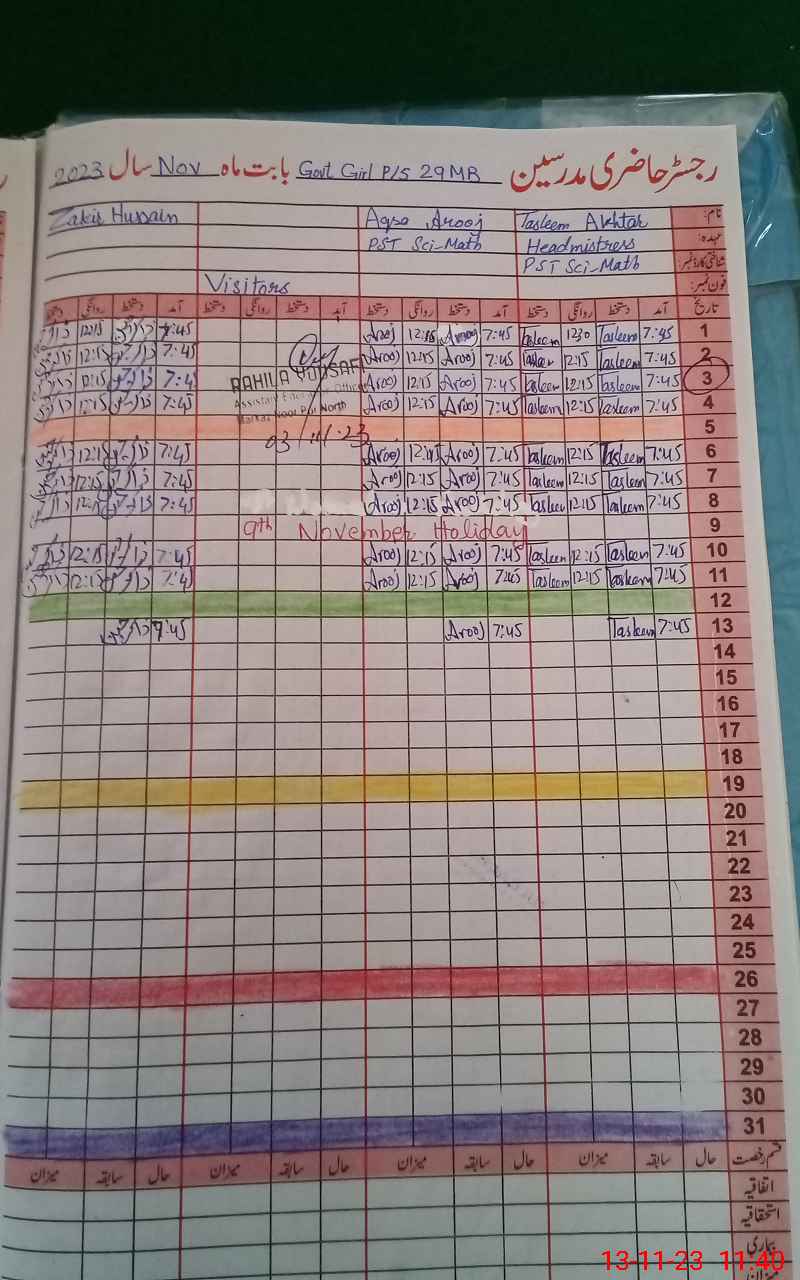 رجسٹر حاضری مدرسین Govt Girl P/S 29MB بابت ماہ Nov سال 2023
نام: Tasleem Akhtar Aqsa Arooj Zakir Hussain
عہدہ: Headmistress PST Sci-Math
شناختی کارڈ نمبر: PST Sci-Math
فون نمبر: Visitors
تاریخ آمد دستخط روانگی دستخط آمد دستخط روانگی دستخط آمد دستخط روانگی دستخط آمد دستخط روانگی دستخط
1 7:45 Tasleem 1230 Tasleem 7:45 Arooj 12:15 Arooj 7:45 12:15
2 7:45 Tasleem 12:15 7:45 Arooj 12:15 Arooj 7:45 12:15
RAHILA YOUSAF
3 7:45 Tasleem 12:15 7:45 Arooj 12:15 Arooj 7:45 12:15
Assistant Education Officer
4 7:45 Tasleem 12:15 Tasleem 7:45 Arooj 12:15 Arooj 7:45 12:15
Markaz Noor Pur North
5
03/11/23
6 7:45 Tasleem 12:15 Tasleem 7:45 Arooj 12:15 Arooj 7:45 12:15
7 7:45 Tasleem 12:15 Tasleem 7:45 Arooj 12:15 Arooj 7:45 12:15
8 7:45 Tasleem 12:15 Tasleem 7:45 Arooj 12:15 Arooj 7:45 12:15
9 9th November Holiday
10 7:45 Tasleem 12:15 Tasleem 7:45 Arooj 12:15 Arooj 7:45 12:15
11 7:45 Tasleem 12:15 Tasleem 7:45 Arooj 12:15 Arooj 7:45 12:15
12
13 7:45 Tasleem 7:45 Arooj 7:45
14
15
16
17
18
19
20
21
22
23
24
25
26
27
28
29
30
31
قسم رخصت حال سابقہ میزان حال سابقہ میزان حال سابقہ میزان حال سابقہ میزان
اتفاقیہ
استحقاقیہ
بیماری
میزان
13-11-23 11:40